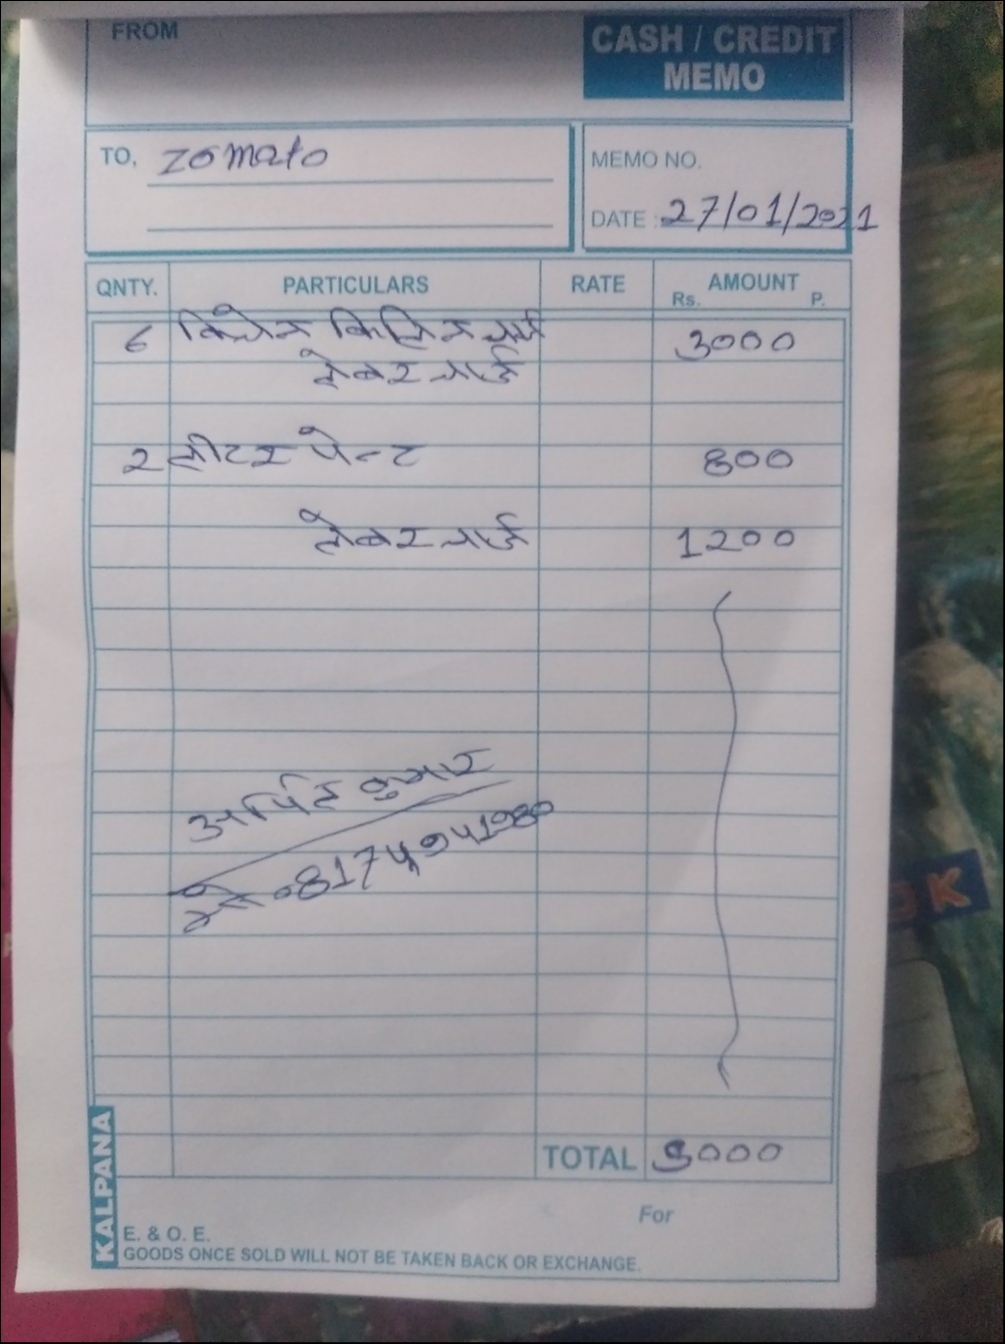 FROM
CASH / CREDIT
MEMO
TO, zomato
MEMO NO.
DATE : 27/01/2021
QNTY. PARTICULARS RATE AMOUNT
Rs. P.
6 किचन 3000
लेबर चार्ज
2 मीटर पेन्ट 800
लेबर चार्ज 1200
अर्पित कुमार
TOTAL 5000
For
KALPANA
E. & O. E.
GOODS ONCE SOLD WILL NOT BE TAKEN BACK OR EXCHANGE.
OK